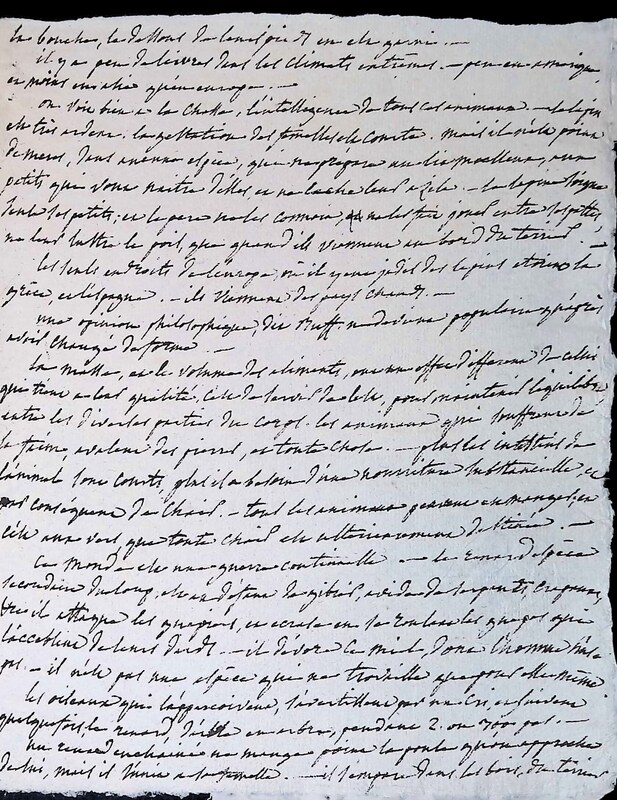 la bouche, le dessous de leurs pieds en est garni. —
il y a peu de lièvres dans les climats extrêmes. — peu en amérique
et moins en asie qu'en europe. —
on voit bien à la chasse, l'intelligence de tous ces animaux. — le lapin
est très ardent. la gestation des femelles est courte. mais il n'est point
de meres, dans aucune espèce, que ne prepare un lit moelleux, aux
petits que vont naitre d'elles, et ne leur
seule ses petits; et le pere ne les connoit, et ne les fait jouer entre ses pattes,
ne leur lustre le poil, que quand ils viennent au bord du terrier. —
les seuls endroits de l'europe, où il y eut jadis des lapins etoient la
grèce, et l'espagne. — ils viennent des pays chauds. —
une opinion philosophique, dit Buff. ne devient populaire qu'après
avoir changé de forme —
la masse, et le volume des aliments, ont un effet different de celui
que tient a leur qualité, c'est de servir de lest, pour maintenir l'equilibre
entre les diverses parties du corps. les animaux qui souffrent de
la faim, avalent des pierres, et toute chose. — plus les intestins de
l'animal sont courts, plus il a besoin d'une nourriture substancielle, et
par conséquent de chair. — tous les animaux peuvent en manger, et
c'est aux vers que toute chair est ulterieurement destinée. —
ce monde est une guerre continuelle — le renard espèce
secondaire du loup, est au défaut de gibier, avide de serpents, crapauds,
il attaque les guepes, et ecrase en se roulant les guepes qui
l'accablent de leurs dards. — il dévore ce miel, dont l'homme
pas. — il n'est pas une espèce que ne travaille que pour elle même
les oiseaux qui l'apperçoivent, s'avertissent par un cri, et suivent
quelquefois le renard, d'arbre en arbre, pendant 2. ou 300 pas. —
un renard enchainé ne mange point la poule qu'on approche
de lui, mais il s'unit a la femelle. — il s'empare dans les bois, du terrier